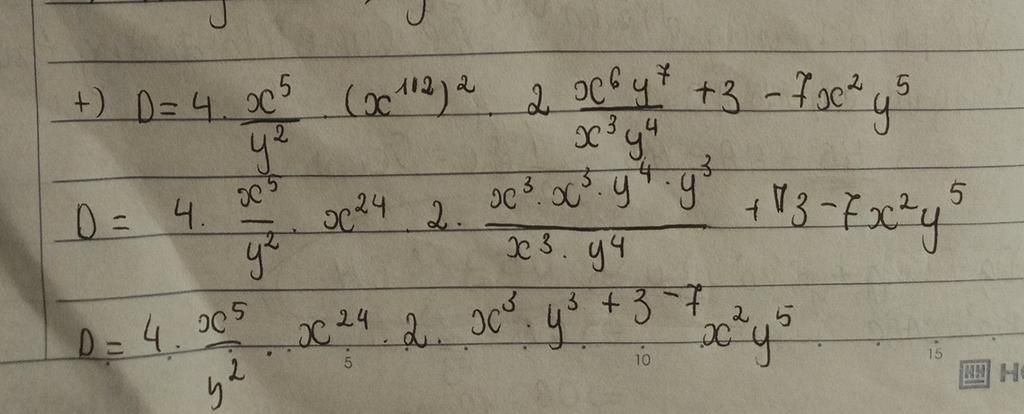 +) D = 4 . x^5/y^2 . (x^112)^2 . 2 x^6 y^7/x^3 y^4 + 3 - 7x^2 y^5
D = 4 . x^5/y^2 . x^24 . 2 . x^3 . x^3 . y^4 . y^3/x^3 . y^4 + 3 - 7x^2 y^5
D = 4 . x^5/y^2 . x^24 . 2 . x^3 . y^3 + 3 - 7 x^2 y^5
5 10 15